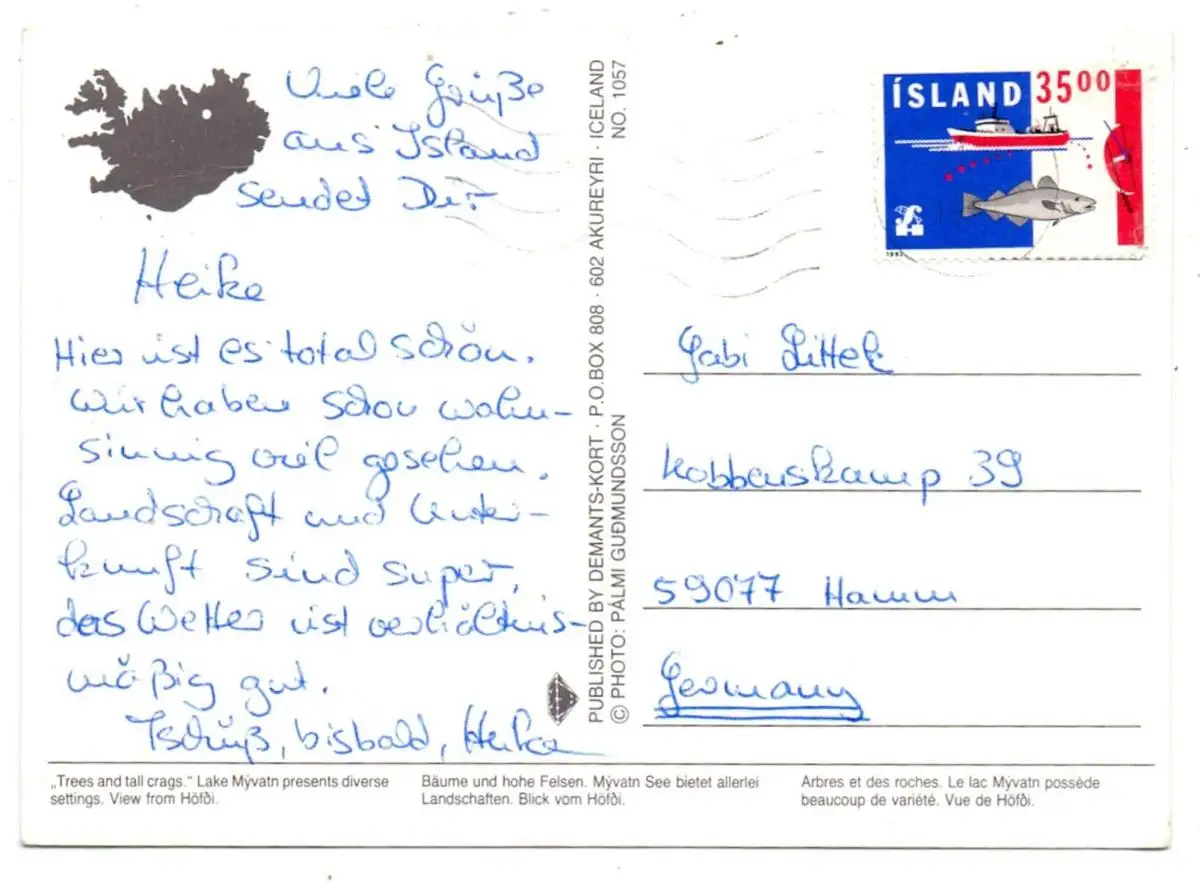 Viele Grüße
aus Island
sendet Dir
Heike
Hier ist es total schön.
Wir haben schon wahn-
sinnig viel gesehen.
Landschaft und Unter-
kunft sind super,
das Wetter ist verhältnis-
mäßig gut.
Tschüß, bisbald, Heike
PUBLISHED BY DEMANTS-KORT · P.O.BOX 808 · 602 AKUREYRI · ICELAND
© PHOTO: PÁLMI GUÐMUNDSSON NO. 1057
ÍSLAND 3500
Gabi Littek
Kobbenskamp 39
59077 Hamm
Germany
„Trees and tall crags.“ Lake Mývatn presents diverse
settings. View from Höfði.
Bäume und hohe Felsen. Mývatn See bietet allerlei
Landschaften. Blick vom Höfði.
Arbres et des roches. Le lac Mývatn possède
beaucoup de variété. Vue de Höfði.